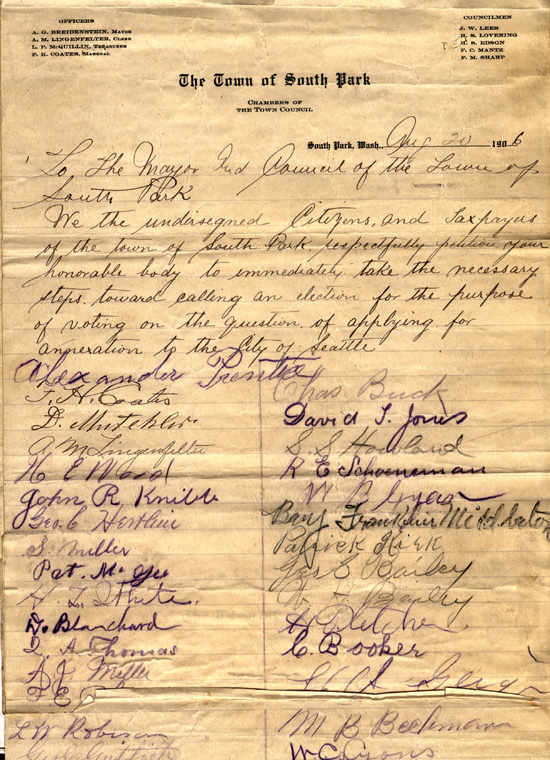 OFFICERS
A. G. BREIDENSTEIN, MAYOR
A. M. LINGENFELTER, CLERK
L. P. McQUILLIN, TREASURER
F. H. COATES, MARSHAL
COUNCILMEN
J. W. LEES
R. S. LOVERING
H. S. EDSON
F. C. MANTZ
F. M. SHARP
The Town of South Park
CHAMBERS OF
THE TOWN COUNCIL
South Park, Wash., Aug 20 1906
To The Mayor And Council of the Town of
South Park
We the undersigned Citizens, and Taxpayers
of the town of South Park respectfully petition your
honorable body to immediately take the necessary
steps, toward calling an election for the purpose
of voting on the question, of applying for
annexation to the City of Seattle
Alexander
F. H. Coates
D.
A M Lingenfelter
H E Ward
John R Knibb
Geo. C.
S. Miller
Pat. McGee
H. L. White.
D. Blanchard
A. Thomas
A J Miller
F E
L W Robison
Chas Buck
David T. Jones
S. S Howland
R E Schoeneman
W B
Benj Franklin Middleton
Patrick Kirk
Geo E Bailey
Bailey
H Pletcher
C. Booker
M B Beekmann
W C Lyons